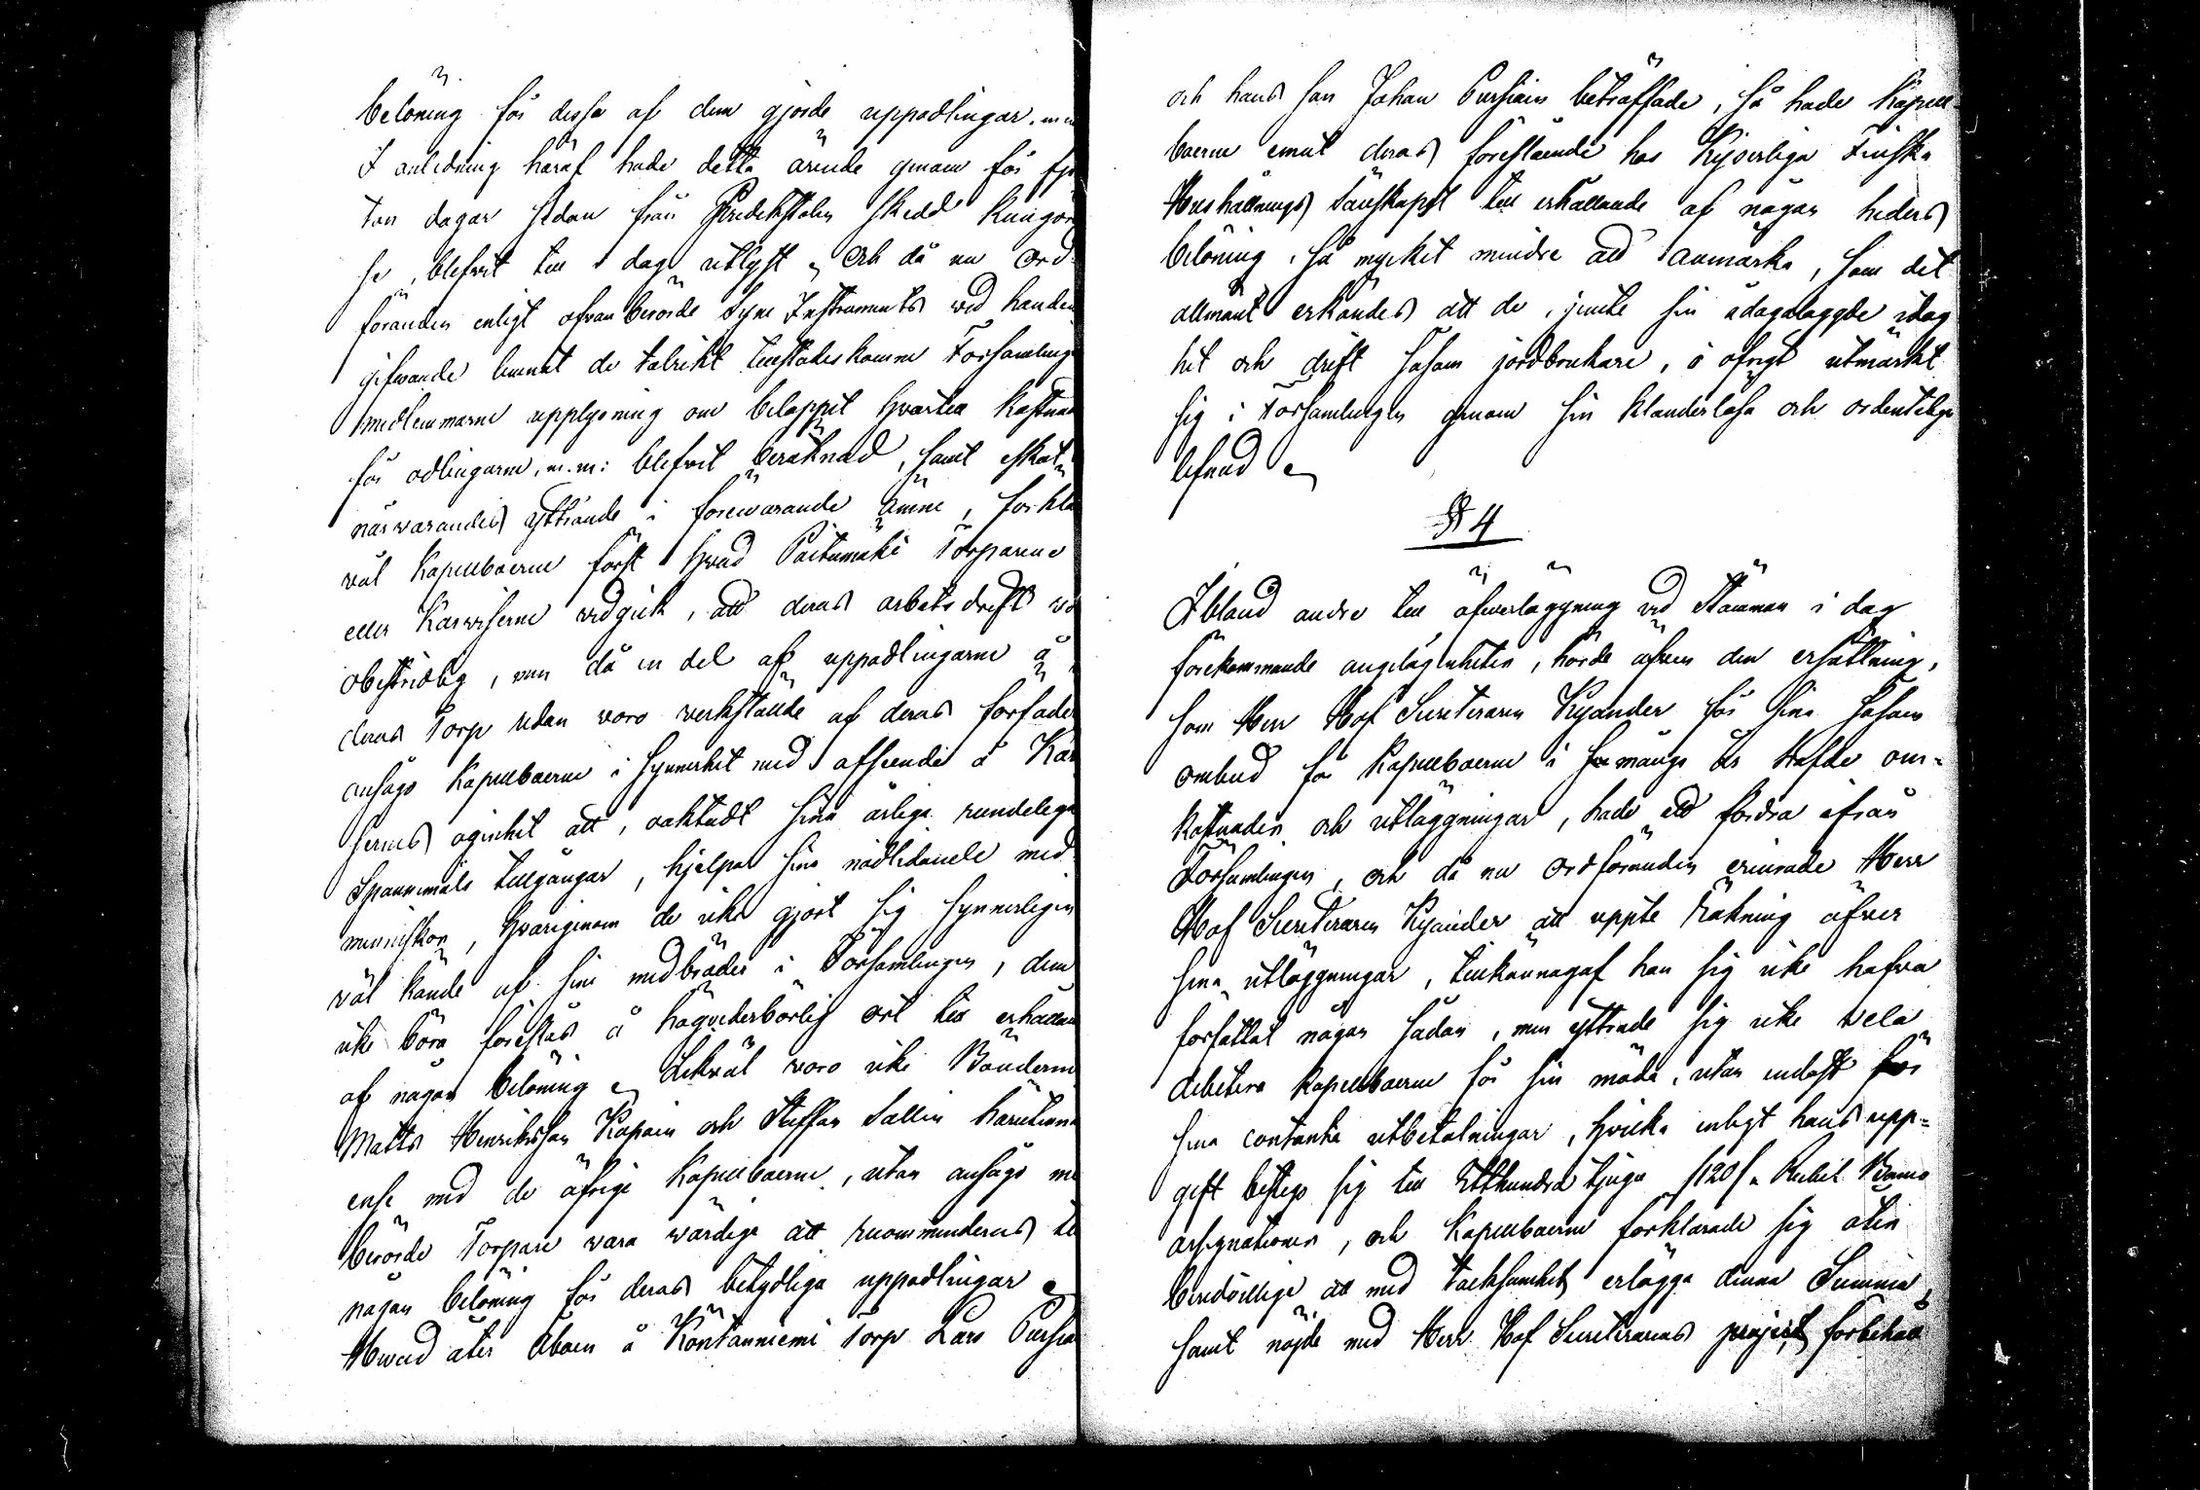 belöning för dessa af dem gjorde uppodlingar. m m
I anledning häraf hade detta ärende genom för fjor
ton dagar sedan från Predikstolen skedd kungör
se, blefvit till i dag utlyst, och då nu Ord
föranden enligt ofvanberörde Syne Instruments vid handen
gifvande lemnat de talrikt tillstädeskomne Församlings
medlemmarne upplysning om beloppet hvartill kostnad
för odlingarne, m.m: blefvit beräknad, samt äskat
närvarandes yttrande i förevarande ämne, förkla
väl Kapellboerne först hvad Paitamäki Torparene
eller Karviserne vidgick, att deras arbets drift va
obestridlig, men då en del af uppodlingarne å
deras Torp redan voro verkstälde af deras förfäder
ansågo Kapellboerne i synnerhet med afseende å Kar
sernes ogenhet att, oaktadt sina årliga rundeliga
Spannemåls tillgångar, hjelpa sina nödlidande med
menniskor, hvarigenom de icke gjort sig synnerligen
väl kände af sine medbröder i Församlingen, dem
icke böra föreslås å högvederbörlig ort till erhålland
af någon belöning. Likväl voro icke Bönderne
Matts Henriksson Kapain och Staffan Sallin härutinna
ense med de öfrige Kapellboerne, utan ansågo m
berörde Torpare vara värdige att recommenderas til
någon belöning för deras betydliga uppodlingar
Hvad åter Åboen å Kontanniemi Torp Lars Pursia
och hans son Johan Pursiain beträffade, så hade Kapell
boerne emot deras föreslående hos Kejserliga Finska
Hushållnings Sällskapet till erhållande af någon heders
belöning, så mycket mindre att anmärka, som det
allmänt erkändes att de, jemte sin ådagalaggde idog
het och drift såsom jordbrukare, i öfrigt utmärkt
sig i Församlingen genom sin klanderlösa och ordentliga
lefnad
§ 4
Ibland andre till öfverläggning vid Stämman i dag
förekommande angelägenheter, hörde äfven den ersättning,
som Herr Hof Secreteraren Kyander för sina såsom
ombud för Kapellboerne i månge år hafde om=
kostnader och utläggningar, hade att fordra ifrån
Församlingen, och då nu Ordföranden erinrade Herr
Hof Secreteraren Kyander att uppte Räkning öfver
sina utläggningar, tillkännagaf han sig icke hafva
författat någon sådan, men yttrade sig icke vela
debitera Kapellboerne för sin möda, utan endast för
sina contanta utbetalningar, hvilka enligt hans upp=
gift bestego sig till Etthundra tjugu /120/ Rubel Banco
assignationer, och Kapellboerne förklarade sig åter
benvillige att med tacksamhet erlägga denna Summa,
samt nöjde med Herr Hof Secreterarens project, förbehöll